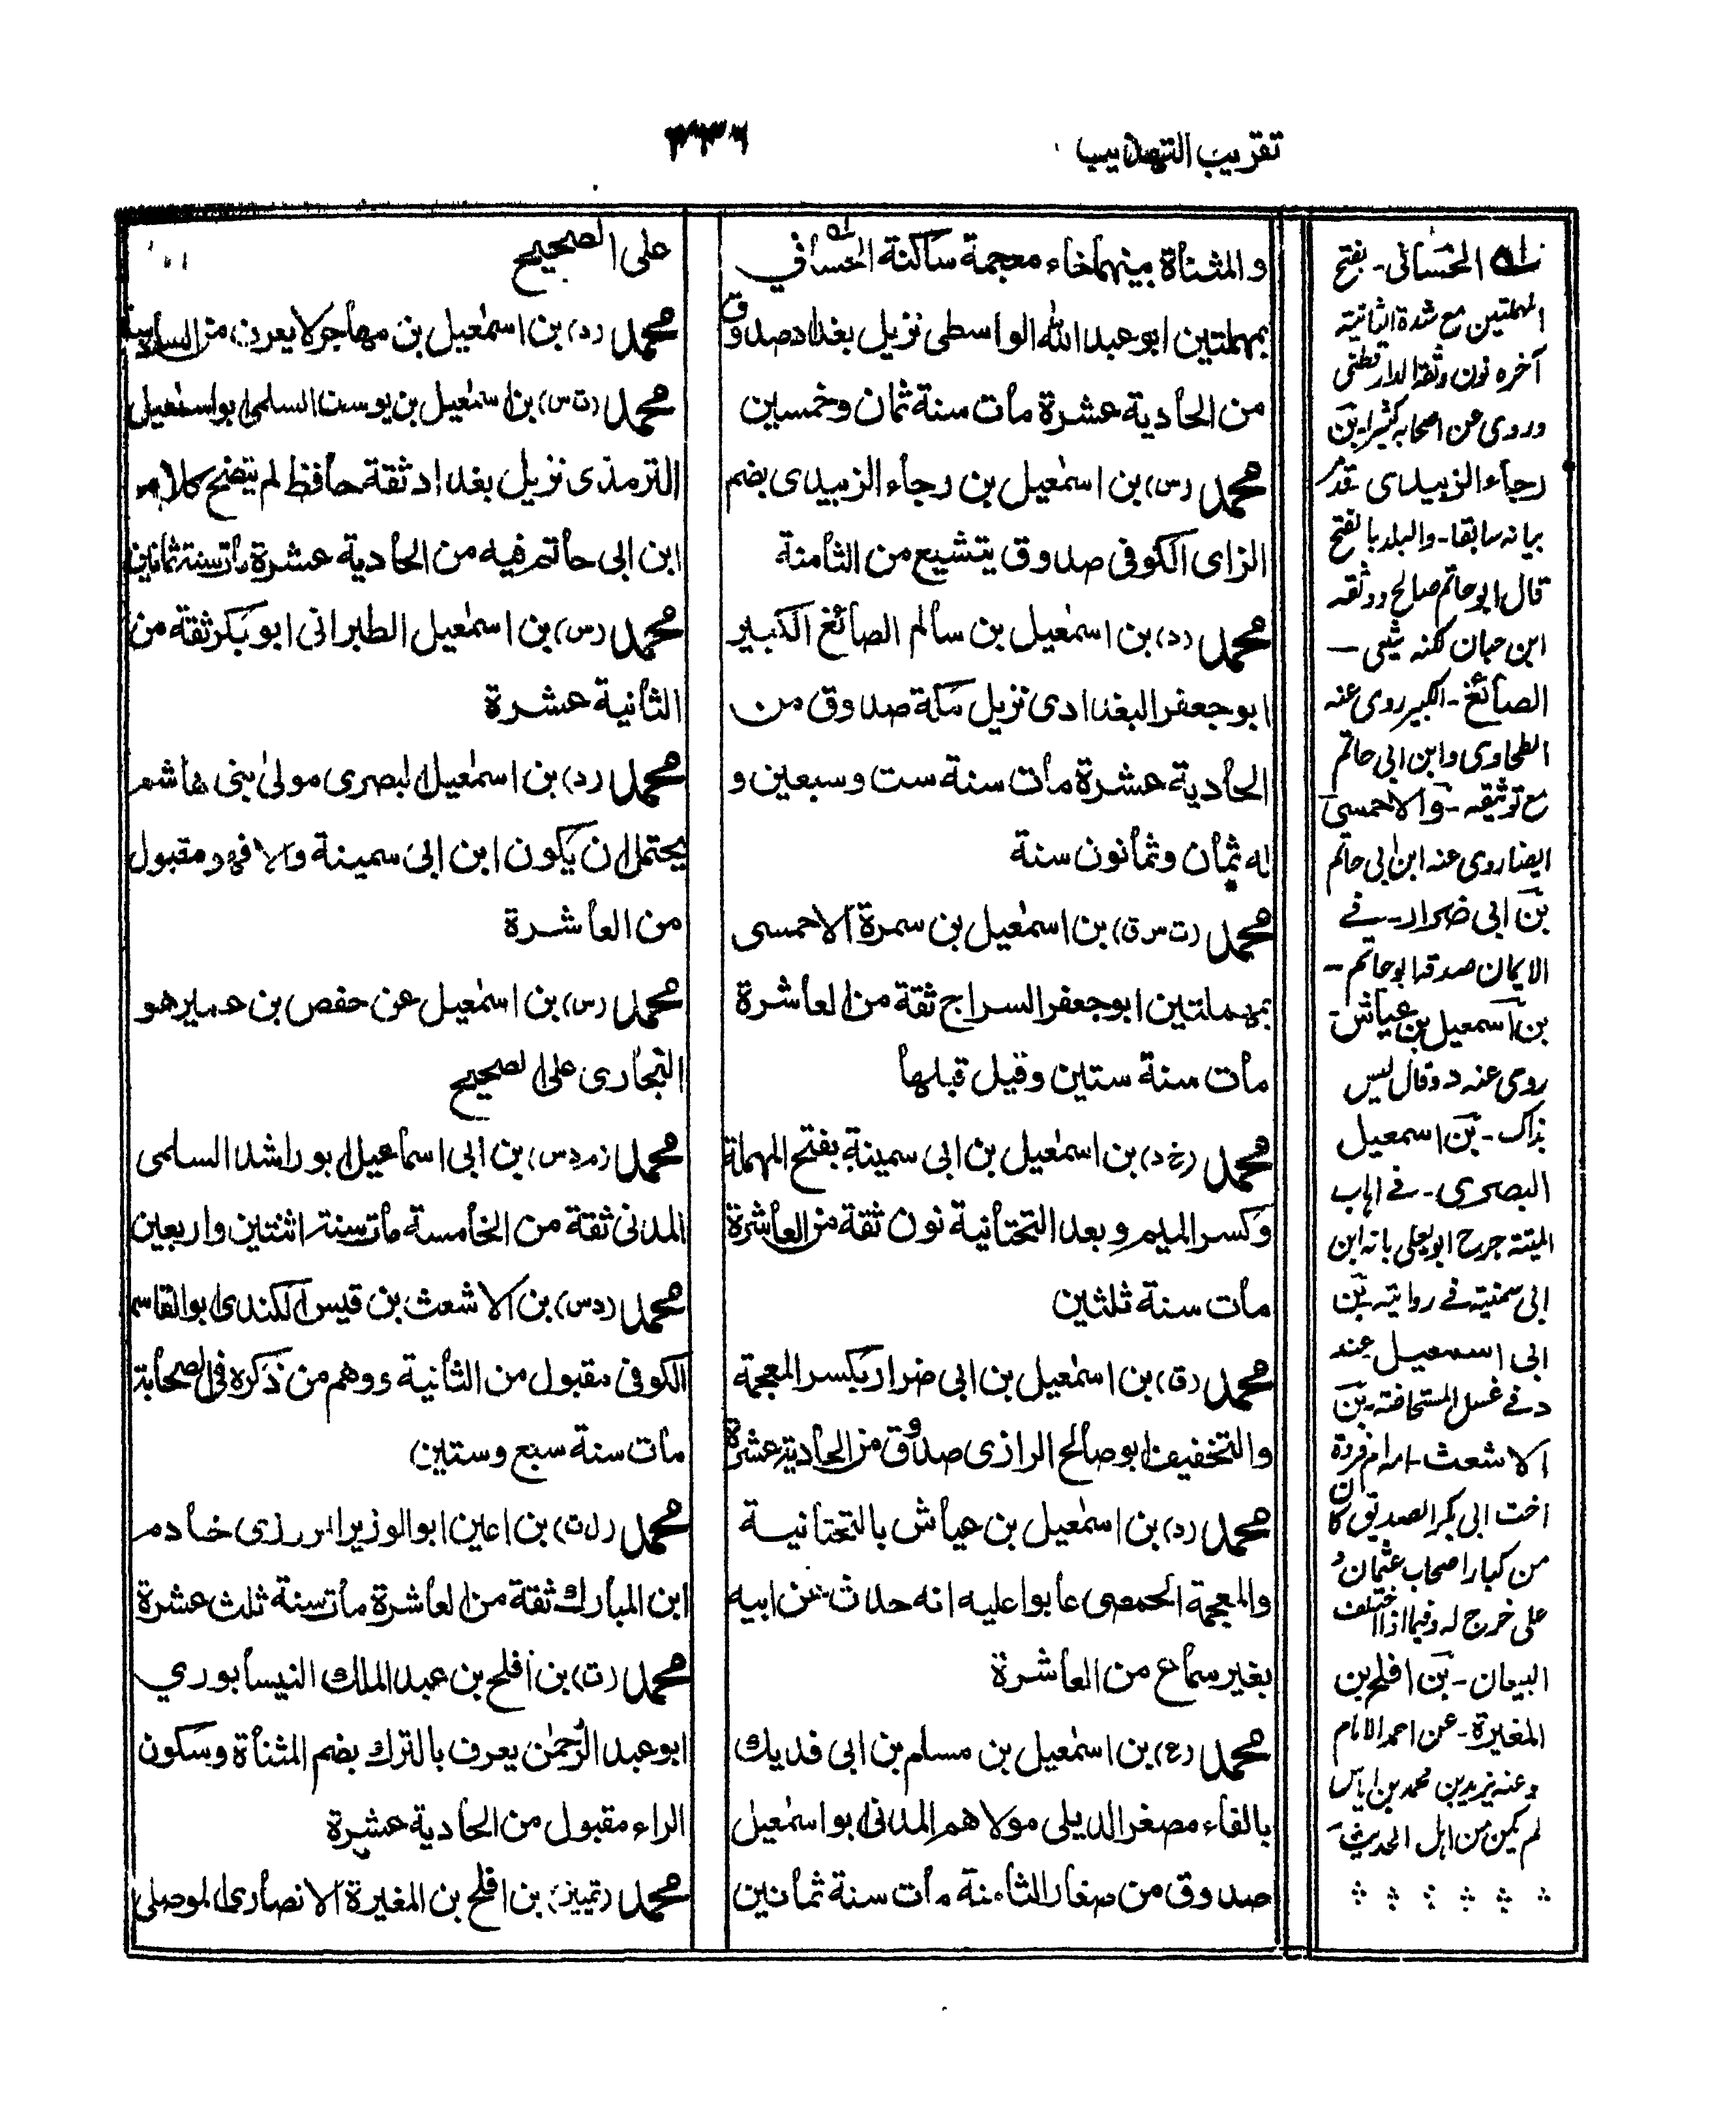 تقريب التهذيب
۳۳۶
والمثناة بينهما خاء معجمة ساكنة الحسانى
بمهملتين ابو عبد الله الواسطى نزيل بغداد صدوق
من الحادية عشرة مات سنة ثمان وخمسين
محمد (س) بن اسمٰعيل بن رجاء الزبيدى بضم
الزاى الكوفى صدوق يتشيع من الثامنة
محمد (د) بن اسمٰعيل بن سالم الصائغ الكبير
ابو جعفر البغدادى نزيل مكة صدوق من
الحادية عشرة مات سنة ست وسبعين و
له ثمان وثمانون سنة
محمد (ت س ق) بن اسمٰعيل بن سمرة الاحمسى
بمهملتين ابو جعفر السراج ثقة من العاشرة
مات سنة ستين وقيل قبلها
محمد (خ د) بن اسمٰعيل بن ابى سمينة بفتح المهملة
وكسر الميم وبعد التحتانية نون ثقة من العاشرة
مات سنة ثلثين
محمد (ق) بن اسمٰعيل بن ابى ضرار بكسر المعجمة
والتخفيف ابو صالح الرازى صدوق من الحادية عشرة
محمد (د) بن اسمٰعيل بن عياش بالتحتانية
والمعجمة الحمصى عابوا عليه انه حدث عن ابيه
بغير سماع من العاشرة
محمد (ع) بن اسمٰعيل بن مسلم بن ابى فديك
بالفاء مصغر الديلى مولاهم المدنى ابو اسمٰعيل
صدوق من صغار الثامنة مات سنة ثمانين
على الصحيح
محمد (د) بن اسمٰعيل بن مهاجر لا يعرف من السادسة
محمد (ت س) بن اسمٰعيل بن يوسف السلمى ابو اسمٰعيل
الترمذى نزيل بغداد ثقة حافظ لم يتضح كلام
ابن ابى حاتم فيه من الحادية عشرة مات سنة ثمانين
محمد (س) بن اسمٰعيل الطبرانى ابو بكر ثقة من
الثانية عشرة
محمد (د) بن اسمٰعيل البصرى مولىٰ بنى هاشم
يحتمل ان يكون ابن ابى سمينة والا فهو مقبول
من العاشرة
محمد (س) بن اسمٰعيل عن حفص بن عمير هو
البخارى على الصحيح
محمد (م د س) بن ابى اسماعيل ابو راشد السلمى
المدنى ثقة من الخامسة مات سنة اثنتين واربعين
محمد (د س) بن الاشعث بن قيس الكندى ابو القاسم
الكوفى مقبول من الثانية ووهم من ذكره فى الصحابة
مات سنة سبع وستين
محمد (ل ت) بن اعين ابو الوزير المروزى خادم
ابن المبارك ثقة من العاشرة مات سنة ثلث عشرة
محمد (ت) بن افلح بن عبد الملك النيسابوري
ابو عبد الرحمٰن يعرف بالترك بضم المثناة وسكون
الراء مقبول من الحادية عشرة
محمد (تمييز) بن افلح بن المغيرة الانصارى الموصلى
الحسانى - بفتح
المهملتين مع شدة الثانية
آخره نون وثقه الدارقطنى
وروى عن اصحابه كثيرا - بن
رجاء الزبيدى تقدم
بيانه سابقا - والبلد بالفتح
قال ابو حاتم صالح ووثقه
ابن حبان لكنه شيعى -
الصائغ - الكبير روى عنه
الطحاوى وابن ابى حاتم
مع توثيقه - والاحمسى
ايضا روى عنه ابن ابى حاتم
بن ابى ضرار - فے
الايمان صدقه ابو حاتم -
بن اسمعيل بن عياش
روى عنه د وقال ليس
بذاك - بن اسمعيل
البصرى - فے اهاب
الميتة جرح ابو يعلى بانه ابن
ابى سمينة فے روايته - بن
ابى اسمعيل عند
د فے غسل المستحاضة - بن
الاشعث - امه ام فروة
اخت ابى بكر الصديق كان
من كبار اصحاب عثمان و
على خرج له د فيما اذا اختلف
البيعان - بن افلح بن
المغيرة - عن احمد الامام
وعنه يزيد بن محمد بن اياس
لم يكن من اهل الحديث -